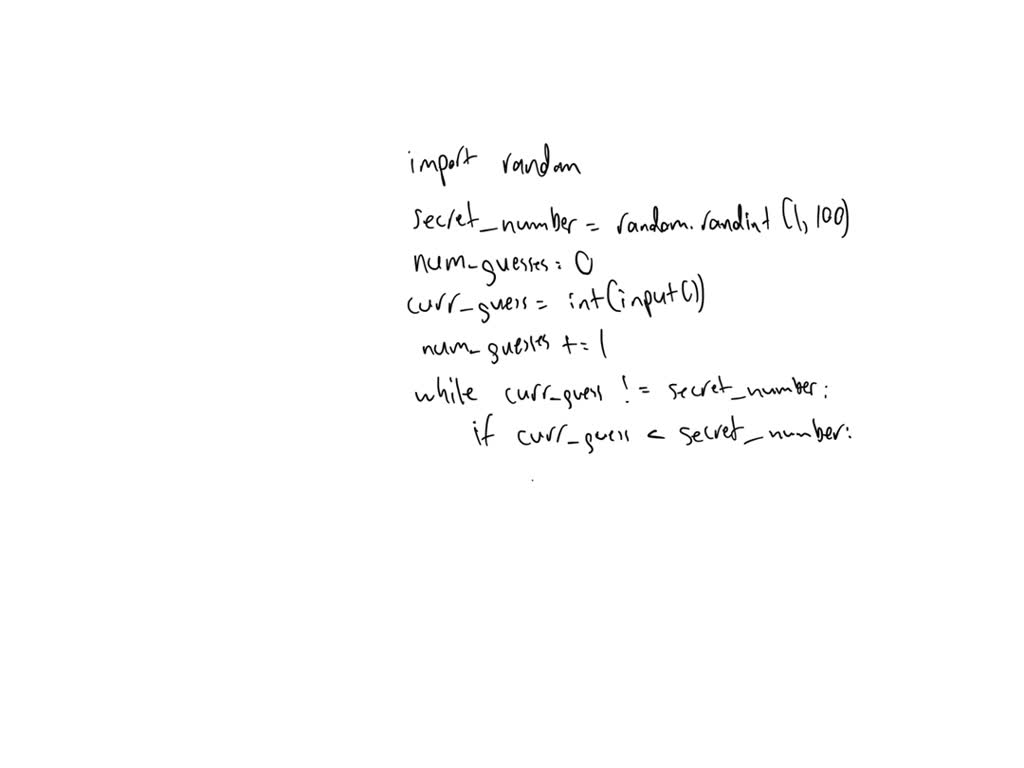 import random
secret_number = random.randint (1, 100)
num_guesses = 0
curr_guess = int(input())
num_guesses += 1
while curr_guess != secret_number:
if curr_guess < secret_number: